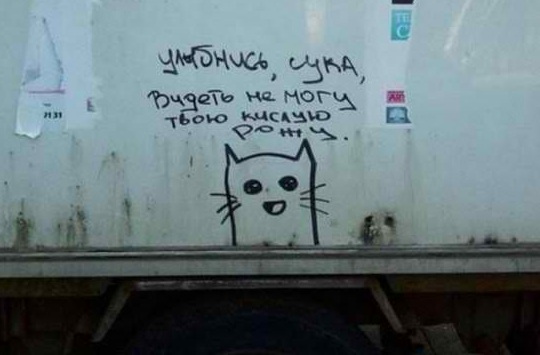 улыбнись, сука,
Видеть не могу
твою кислую
рожу.
TE
C
АЯ
7131